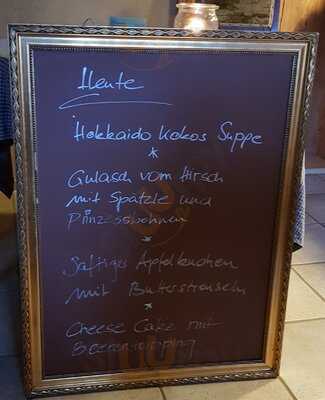 Heute
Hokkaido Kokos Suppe
*
Gulasch vom Hirsch
mit Spätzle und
Prinzessbohnen
*
Saftiger Apfelkuchen
mit Butterstreuseln
*
Cheese Cake mit
Beerentopping